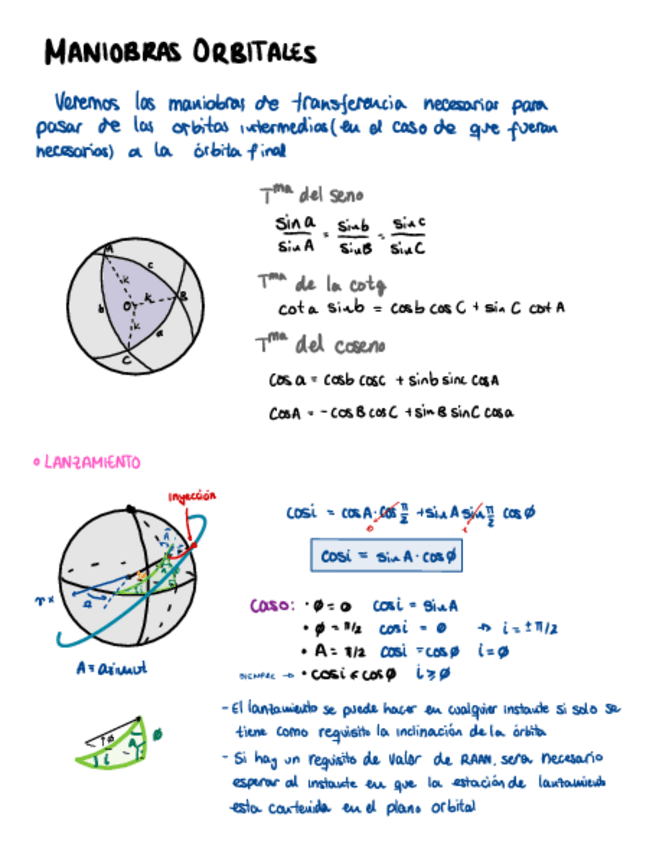 MANIOBRAS ORBITALES
Veremos las maniobras de transferencia necesarias para
pasar de las orbitas intermedias (en el caso de que fueran
necesarias) a la órbita final
Tma del seno
sin a / sin A = sin b / sin B = sin c / sin C
Tma de la cotg
cot a sin b = cos b cos C + sin C cot A
Tma del coseno
cos a = cos b cos c + sin b sin c cos A
cos A = - cos B cos C + sin B sin C cos a
A
c
k
b
O
k
B
k
a
C
LANZAMIENTO
Inyección
cos i = cos A · cos π/2 + sin A sin π/2 cos ø
0
cos i = sin A · cos ø
Ω
A = azimut
Caso: · ø = 0 cos i = sin A
· ø = π/2 cos i = 0 → i = ± π/2
· A = π/2 cos i = cos ø i = ø
SIEMPRE → · cos i ≤ cos ø i ≥ ø
- El lanzamiento se puede hacer en cualquier instante si solo se
tiene como requisito la inclinación de la órbita
- Si hay un requisito de valor de RAAN, sera necesario
esperar al instante en que la estación de lanzamiento
esta contenida en el plano orbital
i
A
ø